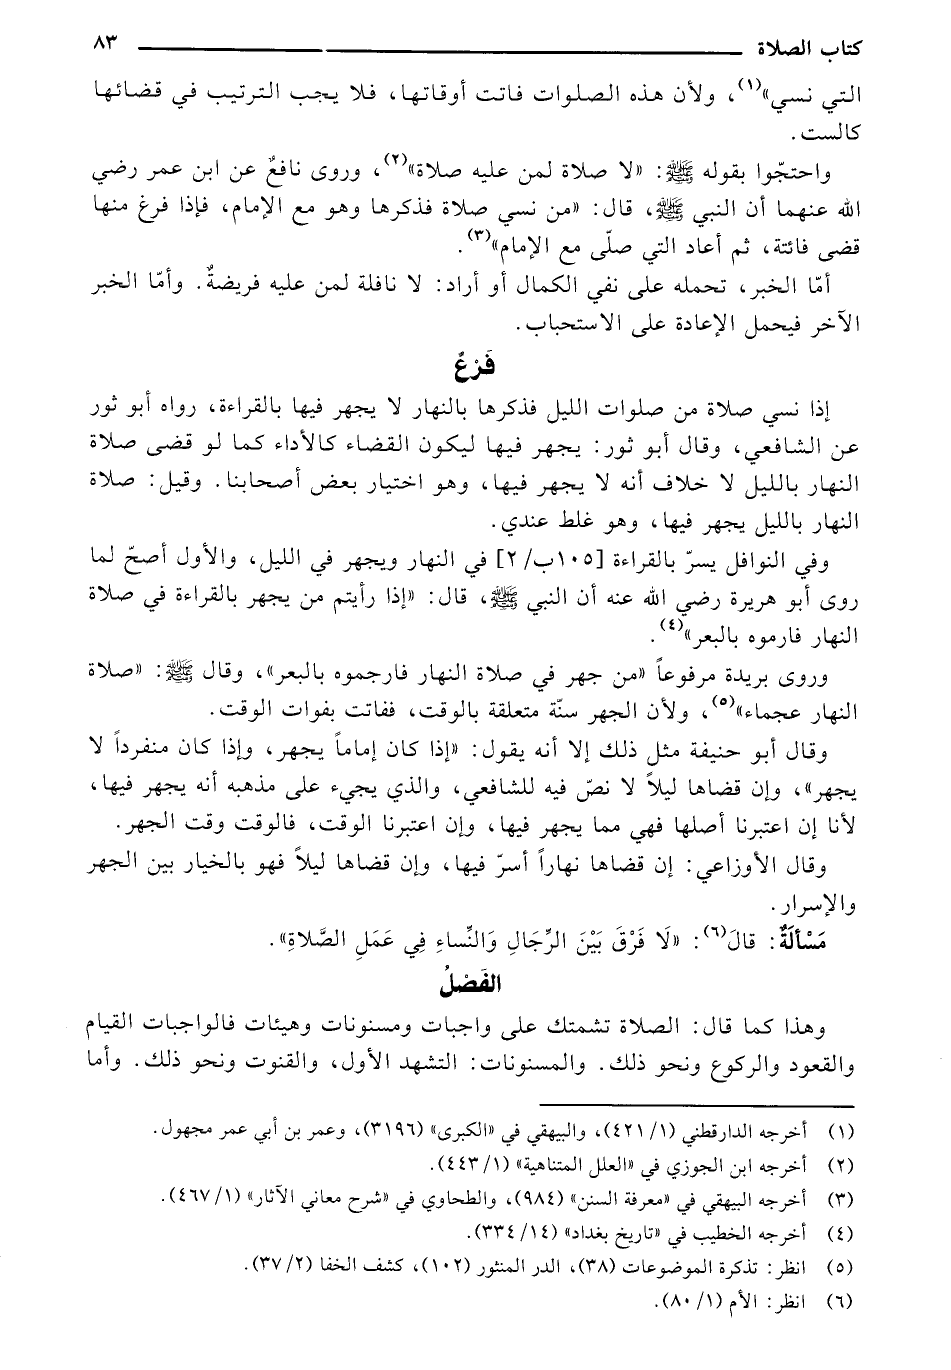 كتاب الصلاة ٨٣
التي نسي»(١)، ولأن هذه الصلوات فاتت أوقاتها، فلا يجب الترتيب في قضائها
كالست.
واحتجّوا بقوله ﷺ: «لا صلاة لمن عليه صلاة»(٢)، وروى نافعٌ عن ابن عمر رضي
الله عنهما أن النبي ﷺ، قال: «من نسي صلاة فذكرها وهو مع الإمام، فإذا فرغ منها
قضى فائتة، ثم أعاد التي صلّى مع الإمام»(٣).
أمّا الخبر، تحمله على نفي الكمال أو أراد: لا نافلة لمن عليه فريضةٌ. وأمّا الخبر
الآخر فيحمل الإعادة على الاستحباب.
فَرْعٌ
إذا نسي صلاة من صلوات الليل فذكرها بالنهار لا يجهر فيها بالقراءة، رواه أبو ثور
عن الشافعي، وقال أبو ثور: يجهر فيها ليكون القضاء كالأداء كما لو قضى صلاة
النهار بالليل لا خلاف أنه لا يجهر فيها، وهو اختيار بعض أصحابنا. وقيل: صلاة
النهار بالليل يجهر فيها، وهو غلط عندي.
وفي النوافل يسرّ بالقراءة [١٠٥ب/ ٢] في النهار ويجهر في الليل، والأول أصحّ لما
روى أبو هريرة رضي الله عنه أن النبي ﷺ، قال: «إذا رأيتم من يجهر بالقراءة في صلاة
النهار فارموه بالبعر»(٤).
وروى بريدة مرفوعاً «من جهر في صلاة النهار فارجموه بالبعر»، وقال ﷺ: «صلاة
النهار عجماء»(٥)، ولأن الجهر سنّة متعلقة بالوقت، ففاتت بفوات الوقت.
وقال أبو حنيفة مثل ذلك إلا أنه يقول: «إذا كان إماماً يجهر، وإذا كان منفرداً لا
يجهر»، وإن قضاها ليلاً لا نصّ فيه للشافعي، والذي يجيء على مذهبه أنه يجهر فيها،
لأنا إن اعتبرنا أصلها فهي مما يجهر فيها، وإن اعتبرنا الوقت، فالوقت وقت الجهر.
وقال الأوزاعي: إن قضاها نهاراً أسرّ فيها، وإن قضاها ليلاً فهو بالخيار بين الجهر
والإسرار.
مَسْأَلَةٌ: قالَ(٦): «لَا فَرْقَ بَيْنَ الرِّجَالِ وَالنِّساءِ فِي عَمَلِ الصَّلاةِ».
الفَصْلُ
وهذا كما قال: الصلاة تشمتك على واجبات ومسنونات وهيئات فالواجبات القيام
والقعود والركوع ونحو ذلك. والمسنونات: التشهد الأول، والقنوت ونحو ذلك. وأما
(١) أخرجه الدارقطني (١/ ٤٢١)، والبيهقي في «الكبرى» (٣١٩٦)، وعمر بن أبي عمر مجهول.
(٢) أخرجه ابن الجوزي في «العلل المتناهية» (١/ ٤٤٣).
(٣) أخرجه البيهقي في «معرفة السنن» (٩٨٤)، والطحاوي في «شرح معاني الآثار» (١/ ٤٦٧).
(٤) أخرجه الخطيب في «تاريخ بغداد» (١٤/ ٣٣٤).
(٥) انظر: تذكرة الموضوعات (٣٨)، الدر المنثور (١٠٢)، كشف الخفا (٢/ ٣٧).
(٦) انظر: الأم (١/ ٨٠).